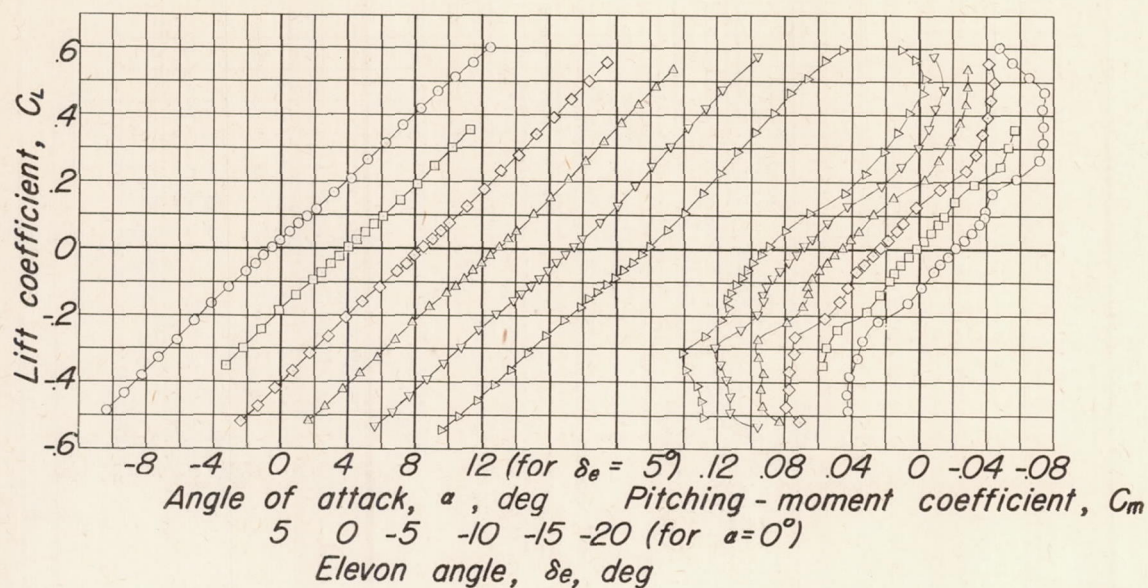 Lift coefficient, C_L
.6
.4
.2
0
-.2
-.4
-.6
-8 -4 0 4 8 12 (for δe = 5°) .12 .08 .04 0 -.04 -.08
Angle of attack, α, deg Pitching-moment coefficient, Cm
5 0 -5 -10 -15 -20 (for α=0°)
Elevon angle, δe, deg